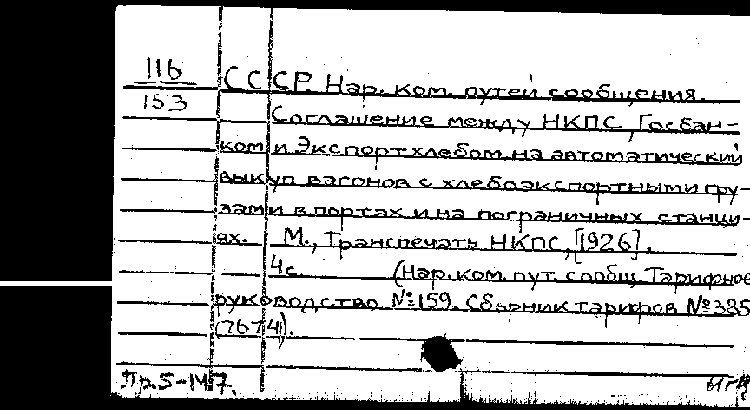 116
153
СССР. Нар. ком. путей сообщения.
Соглашение между НКПС, Госбан-
ком и Экспортхлебом на автоматический
выкуп вагонов с хлебоэкспортными гру-
зами в портах и на пограничных станци-
ях. М., Транспечать НКПС, [1926].
4с. (Нар. ком. пут. сообщ. Тарифное
руководство №159. Сборник тарифов №385
(7674).
Пр. 5-М7.